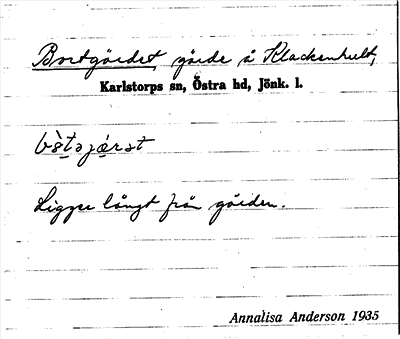 Bortgärdet, gärde å Klackenhult,
Karlstorps sn, Östra hd, Jönk. l.
Ligger långt från gården.
Annalisa Anderson 1935